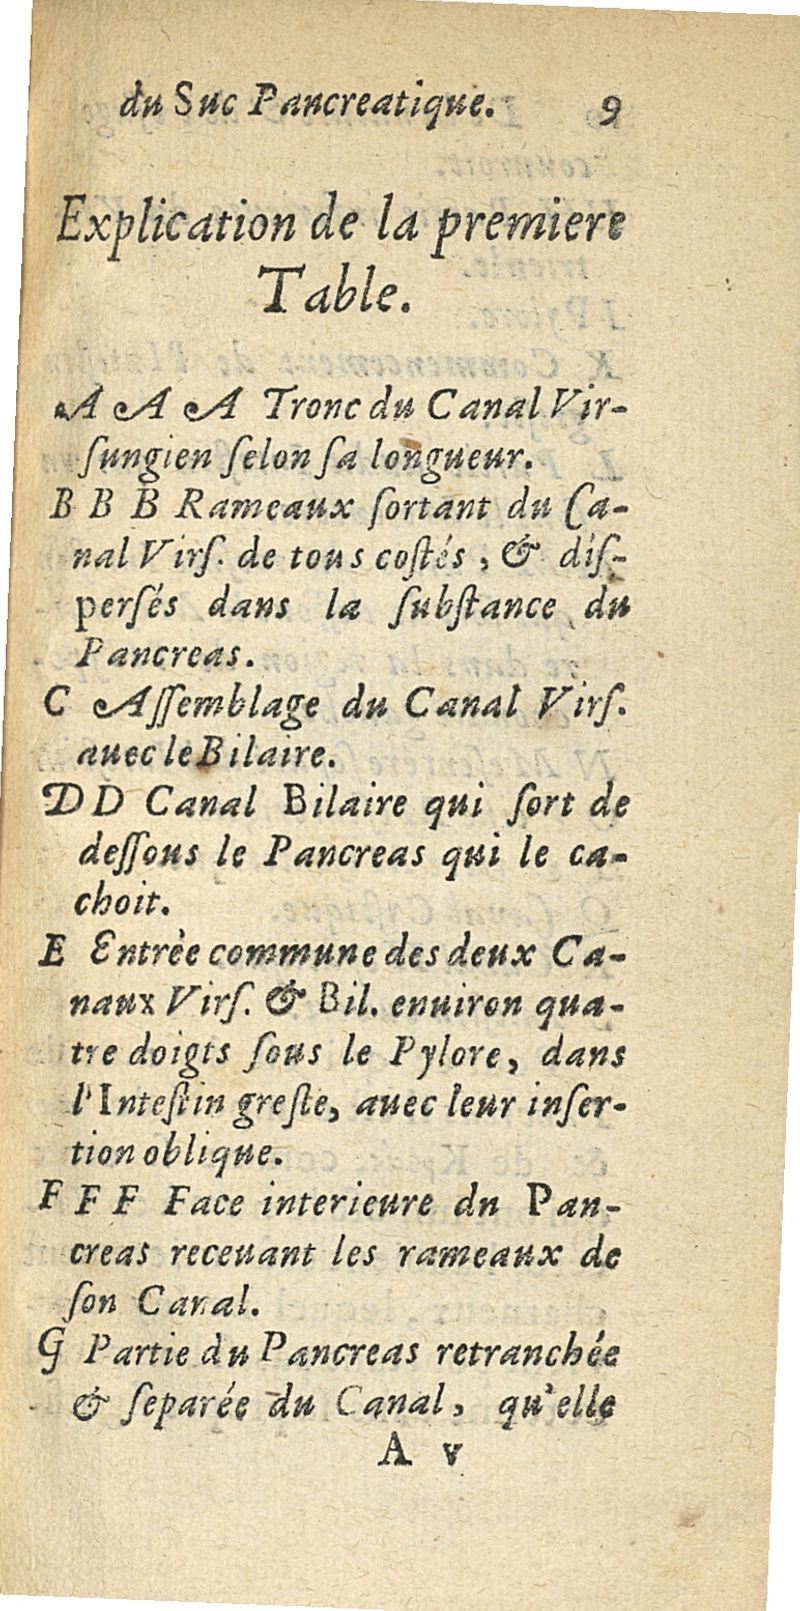 du Suc Pancreatique. 9
Explication de la premiere
Table.
A A A Tronc du Canal Vir-
ſungien ſelon ſa longueur.
B B B Rameaux ſortant du Ca-
nal Virſ. de tous coſtés, & diſ-
perſés dans la ſubſtance du
Pancreas.
C Aſſemblage du Canal Virſ.
auec le Bilaire.
D D Canal Bilaire qui ſort de
deſſous le Pancreas qui le ca-
choit.
E Entrèe commune des deux Ca-
naux Virſ. & Bil. enuiron qua-
tre doigts ſous le Pylore, dans
l'Inteſtin greſle, auec leur inſer-
tion oblique.
F F F Face interieure dn Pan-
creas receuant les rameaux de
ſon Canal.
G Partie du Pancreas retranchée
& ſeparée du Canal, qu'elle
A v